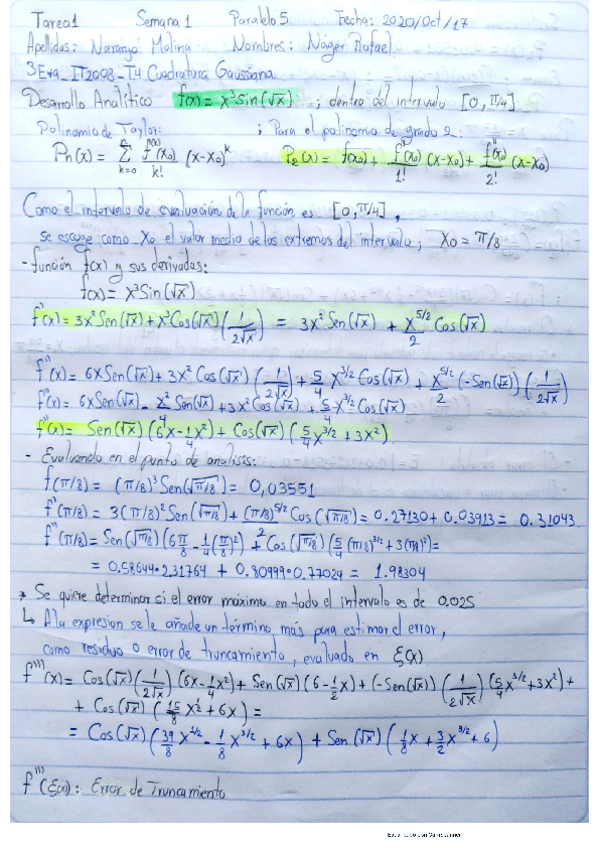 Tarea1 Semana 1 Paralelo 5 Fecha: 2020/Oct/17
Apellidos: Naranjo Molina Nombres: Náger Rafael
3Eva_IT2008_T4 Cuadratura Gaussiana
Desarrollo Analítico f(x) = x³sin(√x) ; dentro del intervalo [0, π/4]
Polinomio de Taylor: ; Para el polinomio de grado 2:
Pn(x) = Σ_{k=0}^{n} f^(k)(x₀)/k! (x-x₀)^k P₂(x) = f(x₀) + f'(x₀)/1! (x-x₀) + f''(x₀)/2! (x-x₀)
Como el intervalo de evaluación de la función es [0, π/4],
se escoge como x₀ el valor medio de los extremos del intervalo; x₀ = π/8
- función f(x) y sus derivadas:
f(x) = x³Sin(√x)
f'(x) = 3x² Sen(√x) + x³Cos(√x) (1/(2√x)) = 3x² Sen(√x) + x^(5/2)/2 Cos(√x)
f''(x) = 6xSen(√x) + 3x² Cos(√x) (1/(2√x)) + 5/4 x^(3/2) Cos(√x) + x^(5/2)/2 (-Sen(√x)) (1/(2√x))
f''(x) = 6xSen(√x) - x²/4 Sen(√x) + 3x² Cos(√x) + 5/4 x^(3/2) Cos(√x)
f''(x) = Sen(√x) (6x - 1/4 x²) + Cos(√x) (5/4 x^(3/2) + 3x²)
- Evaluando en el punto de analisis:
f(π/8) = (π/8)³ Sen(√π/8) = 0,03551
f'(π/8) = 3(π/8)² Sen(√π/8) + (π/8)^(5/2)/2 Cos(√π/8) = 0.27130 + 0.03913 = 0.31043
f''(π/8) = Sen(√π/8) (6π/8 - 1/4 (π/8)²) + Cos(√π/8) (5/4 (π/8)^(3/2) + 3(π/8)²) =
= 0.58644•2.31764 + 0.80999•0.77024 = 1.98304
* Se quiere determinar si el error máximo en todo el intervalo es de 0.025
↳ A la expresion se le añade un término más para estimar el error,
como residuo o error de truncamiento, evaluado en ξ(x)
f'''(x) = Cos(√x) (1/(2√x)) (6x - 1/4 x²) + Sen(√x) (6 - 1/2 x) + (-Sen(√x)) (1/(2√x)) (5/4 x^(3/2) + 3x²) +
+ Cos(√x) (15/8 x^(1/2) + 6x) =
= Cos(√x) (39/8 x^(1/2) - 1/8 x^(3/2) + 6x) + Sen(√x) (1/8 x + 3/2 x^(3/2) + 6)
f'''(ξ(x)): Error de Truncamiento